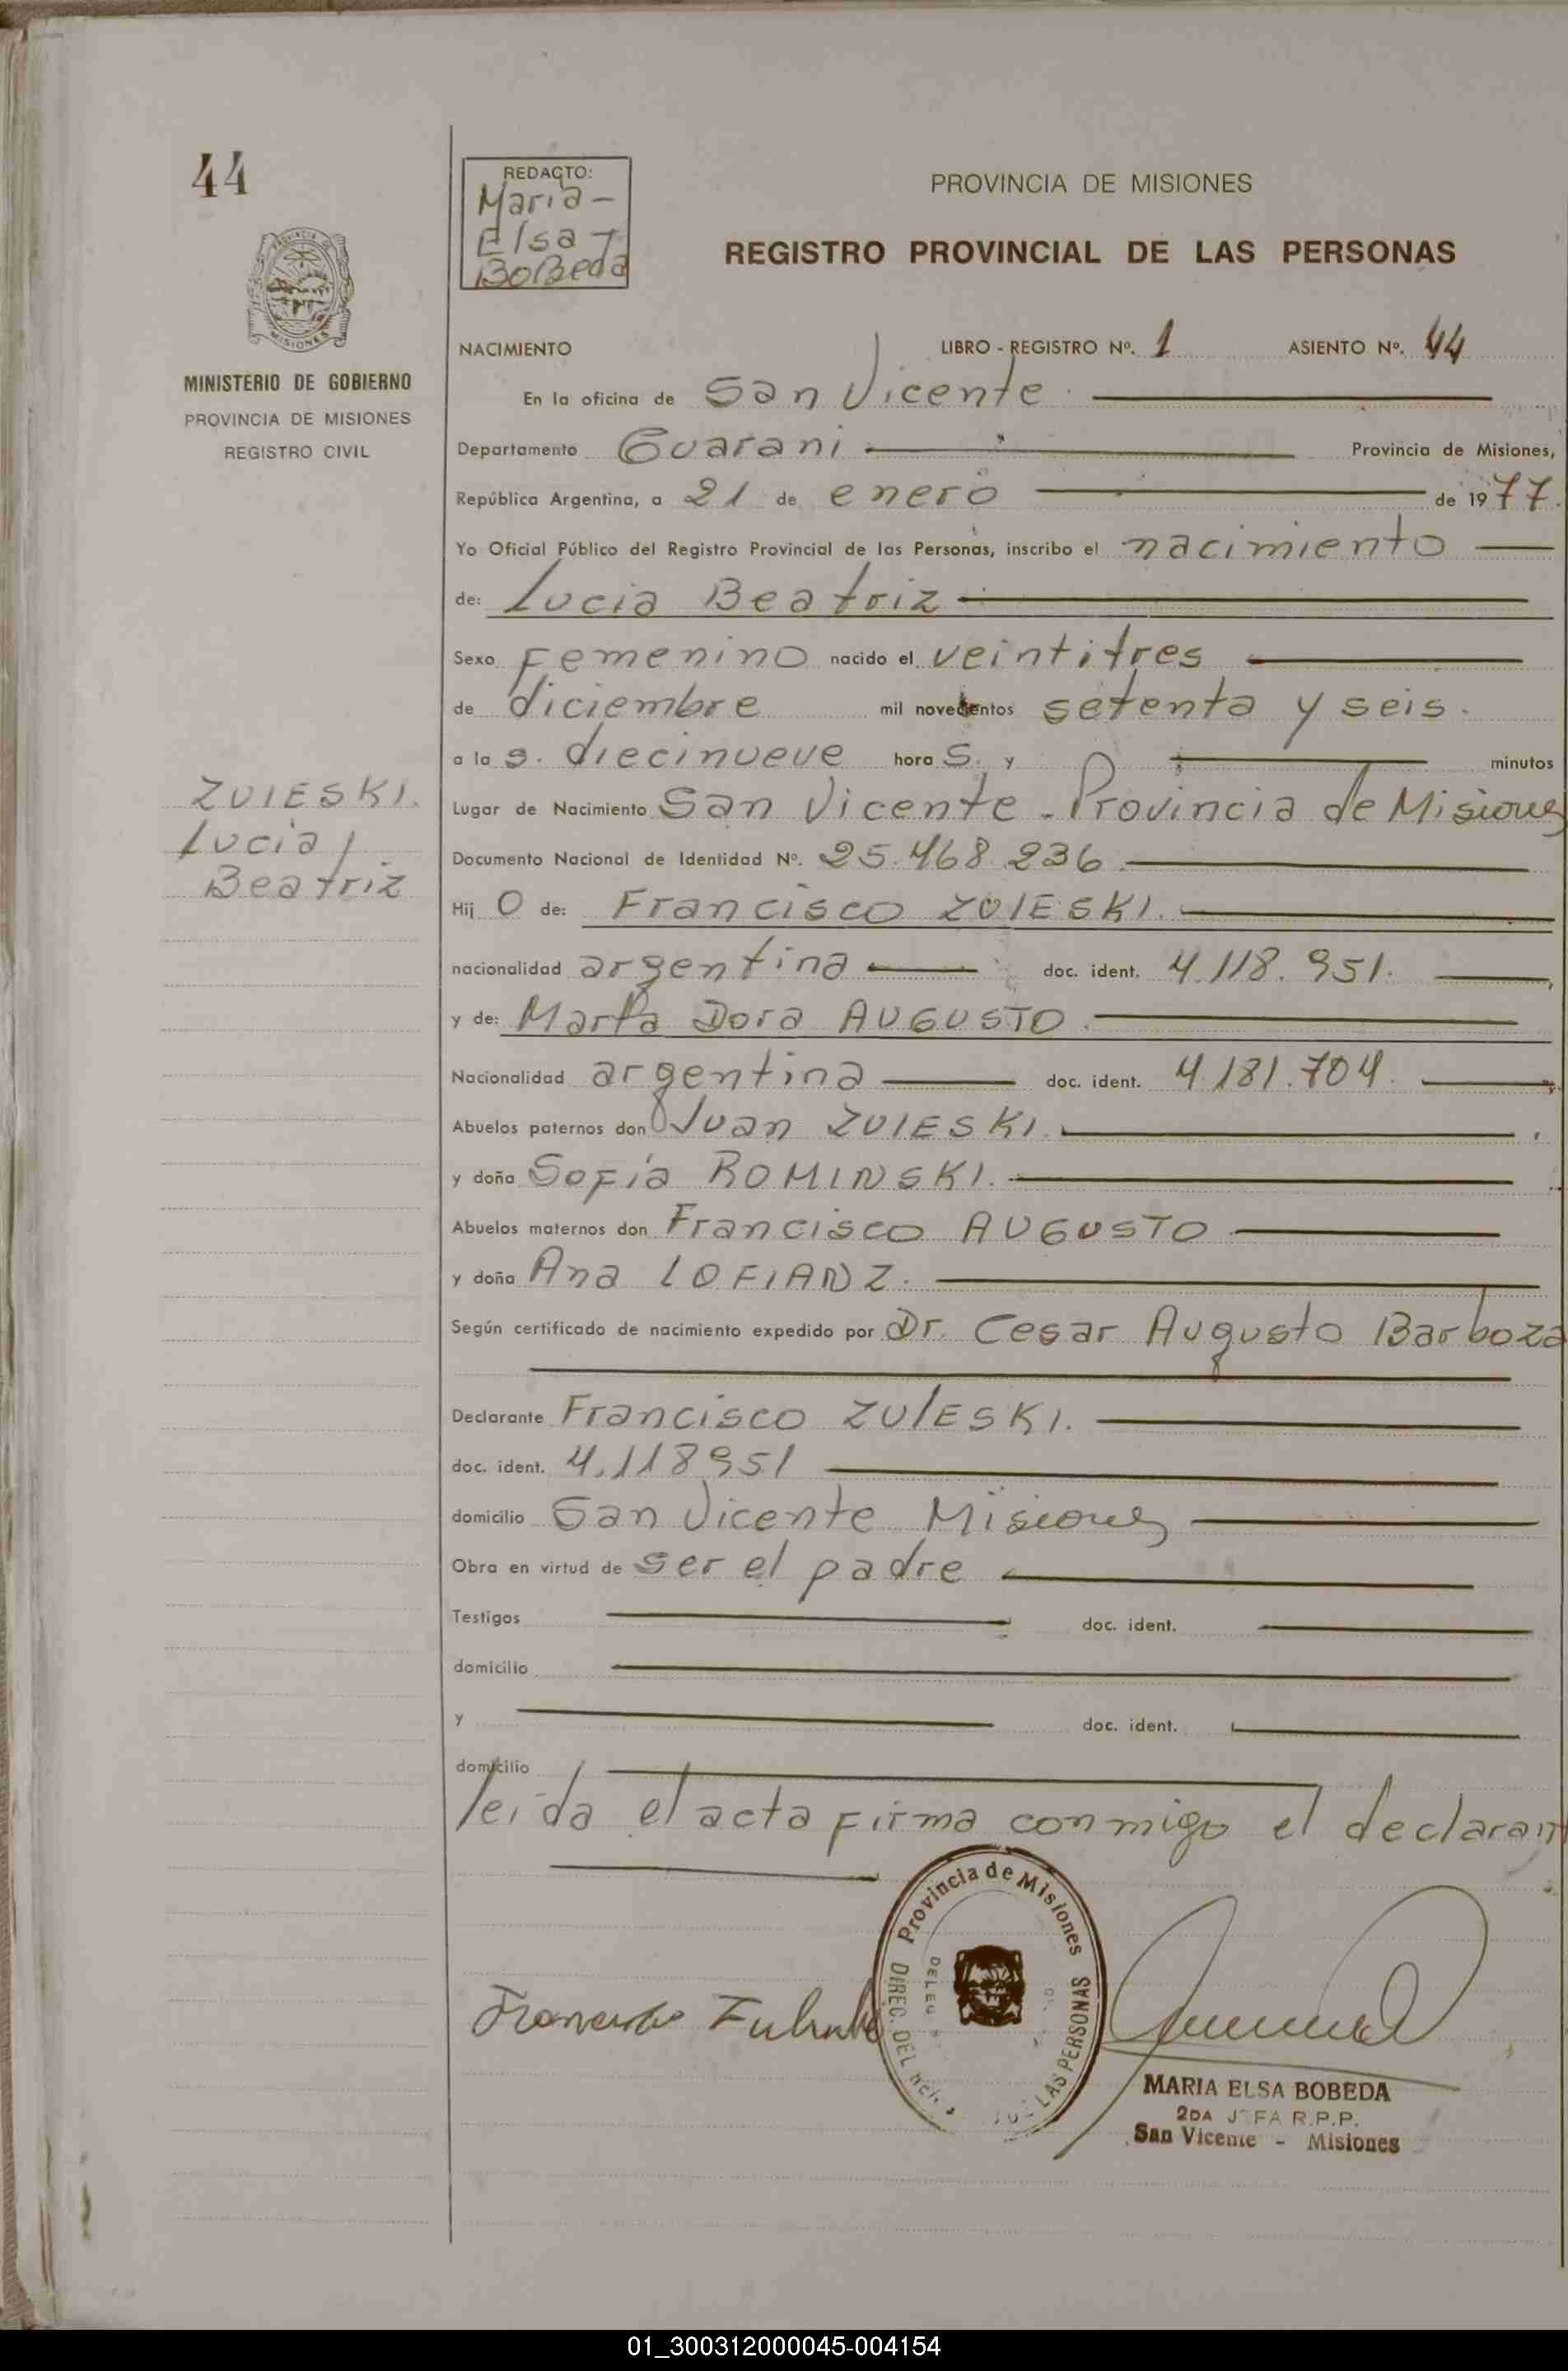 44
REDACTO:
Maria -
Elsa -
BoBeda
PROVINCIA DE MISIONES
REGISTRO PROVINCIAL DE LAS PERSONAS
MINISTERIO DE GOBIERNO
PROVINCIA DE MISIONES
REGISTRO CIVIL
NACIMIENTO LIBRO - REGISTRO Nº. 1 ASIENTO Nº. 44
En la oficina de San Vicente
Departamento Guarani Provincia de Misiones,
República Argentina, a 21 de enero de 1977.
Yo Oficial Público del Registro Provincial de las Personas, inscribo el nacimiento
de: Lucia Beatriz
Sexo Femenino nacido el veintitres
de diciembre mil novecientos setenta y seis.
a la s. diecinueve hora s. y minutos
ZUlESKI.
Lucia
Beatriz
Lugar de Nacimiento San Vicente - Provincia de Misiones
Documento Nacional de Identidad Nº. 25.468.236
Hij O de: Francisco ZUlESKI.
nacionalidad argentina doc. ident. 4.118.951.
y de: Marta Dora AUGUSTO.
Nacionalidad argentina doc. ident. 4.181.704.
Abuelos paternos don Juan ZUlESKI.
y doña Sofía ROMINSKI.
Abuelos maternos don Francisco AUGUSTO
y doña Ana LOFIANZ.
Según certificado de nacimiento expedido por Dr. Cesar Augusto Barboza
Declarante Francisco ZUlESKI.
doc. ident. 4.118951
domicilio San Vicente Misiones
Obra en virtud de ser el padre
Testigos doc. ident.
domicilio
y doc. ident.
domicilio
leída el acta firma conmigo el declarant
Provincia de Misiones
DIREC. DEL LAS PERSONAS
MARIA ELSA BOBEDA
2DA JEFA R.P.P.
San Vicente - Misiones
01_300312000045-004154